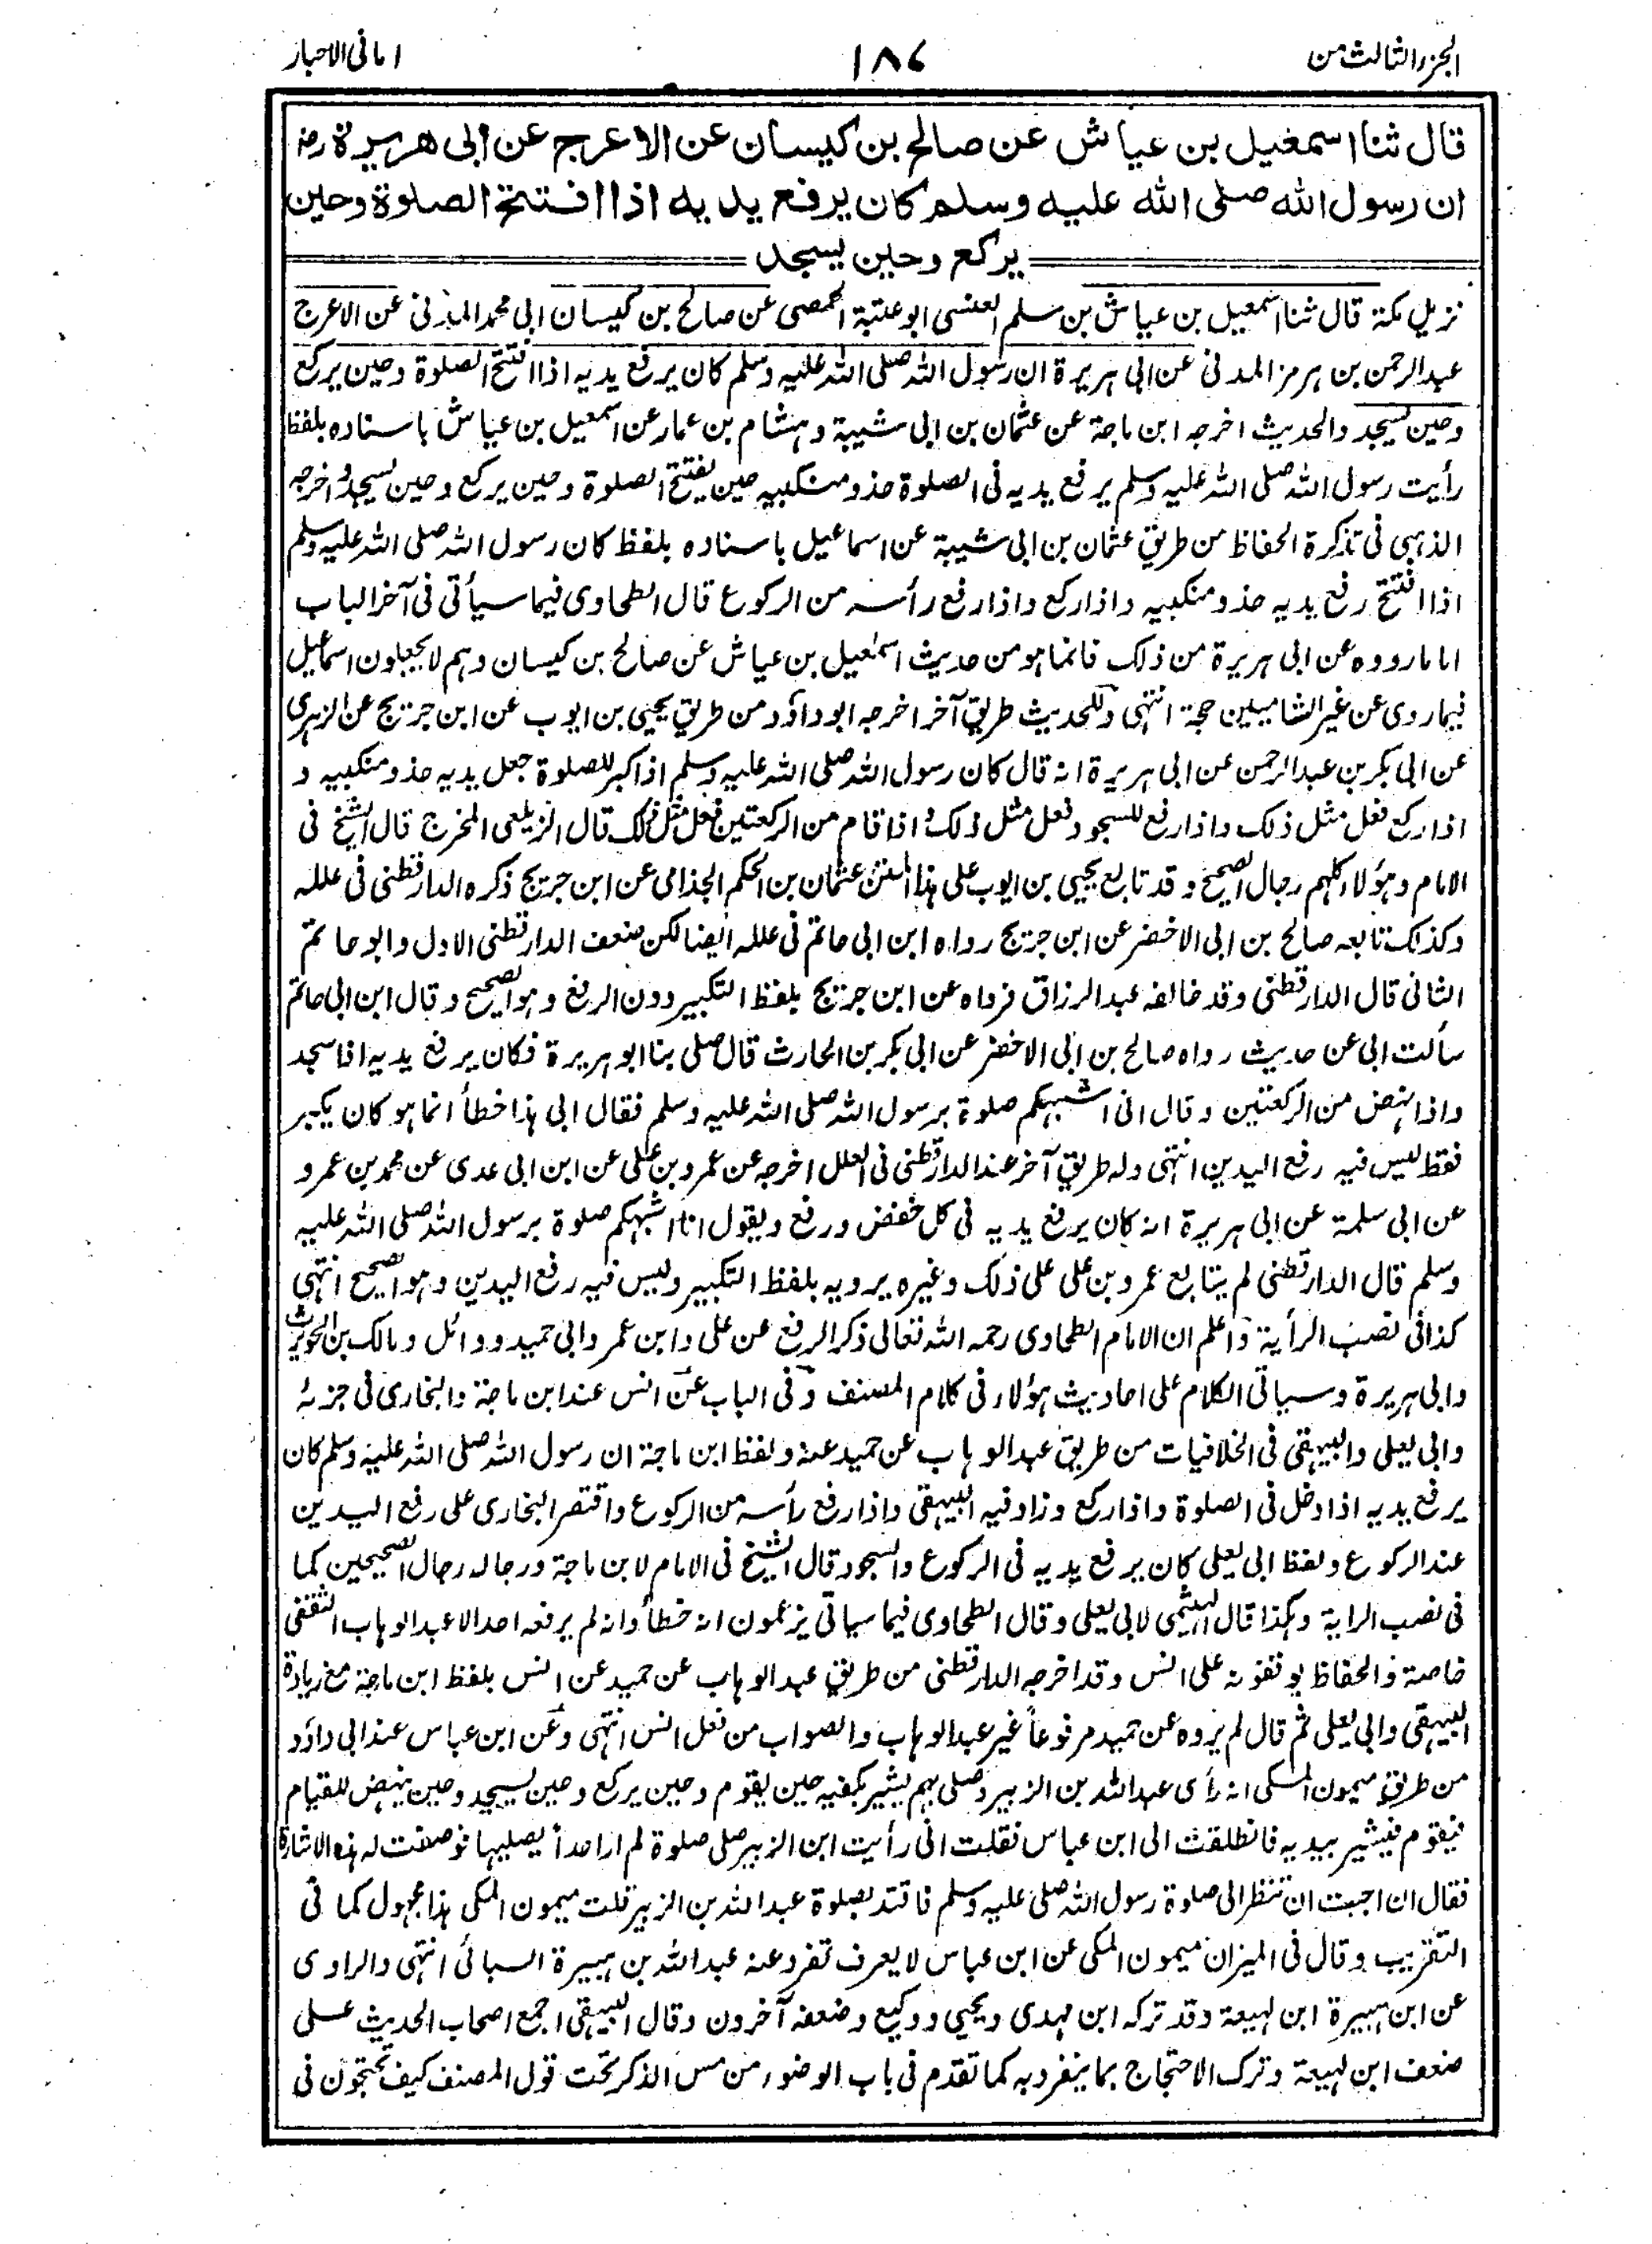 الجزء الثالث من
١٨٦
امانى الاحبار
قال ثنا اسمعيل بن عياش عن صالح بن كيسان عن الاعرج عن ابى هريرة رض
ان رسول الله صلى الله عليه وسلم كان يرفع يديه اذا افتتح الصلوة وحين
يركع وحين يسجد
نزيل مكة قال ثنا اسمعيل بن عياش بن سلم العنسى ابو عتبة الحمصى عن صالح بن كيسان ابى محمد المدنى عن الاعرج
عبد الرحمن بن هرمز المدنى عن ابى هريرة ان رسول الله صلى الله عليه وسلم كان يرفع يديه اذا افتتح الصلوة وحين يركع
وحين يسجد والحديث اخرجه ابن ماجة عن عثمان بن ابى شيبة وهشام بن عمار عن اسمعيل بن عياش باسناده بلفظ
رأيت رسول الله صلى الله عليه وسلم يرفع يديه فى الصلوة حذو منكبيه حين يفتتح الصلوة وحين يركع وحين يسجد واخرجه
الذهبى فى تذكرة الحفاظ من طريق عثمان بن ابى شيبة عن اسماعيل باسناده بلفظ كان رسول الله صلى الله عليه وسلم
اذا افتتح رفع يديه حذو منكبيه واذا ركع واذا رفع رأسه من الركوع قال الطحاوى فيما سيأتى فى آخر الباب
اما ما رووه عن ابى هريرة من ذلك فانما هو من حديث اسمعيل بن عياش عن صالح بن كيسان وهم لا يجعلون اسماعيل
فيما روى عن غير الشاميين حجة انتهى وللحديث طريق آخر اخرجه ابو داؤد من طريق يحيى بن ايوب عن ابن جريج عن الزهرى
عن ابى بكر بن عبد الرحمن عن ابى هريرة انه قال كان رسول الله صلى الله عليه وسلم اذا كبر للصلوة جعل يديه حذو منكبيه و
اذا ركع فعل مثل ذلك واذا رفع للسجود فعل مثل ذلك واذا قام من الركعتين فعل مثل ذلك قال الزيلعى المخرج قال الشيخ فى
الامام وهؤلاء كلهم رجال الصحيح وقد تابع يحيى بن ايوب على هذا المتن عثمان بن الحكم الجذامى عن ابن جريج ذكره الدارقطنى فى علله
وكذلك تابعه صالح بن ابى الاخضر عن ابن جريج رواه ابن ابى حاتم فى علله ايضا لكن ضعف الدارقطنى الاول وابو حاتم
الثانى قال الدارقطنى وقد خالفه عبد الرزاق فرواه عن ابن جريج بلفظ التكبير دون الرفع وهو الصحيح وقال ابن ابى حاتم
سألت ابى عن حديث رواه صالح بن ابى الاخضر عن ابى بكر بن الحارث قال صلى بنا ابو هريرة فكان يرفع يديه اذا سجد
واذا نهض من الركعتين وقال انى اشبهكم صلوة برسول الله صلى الله عليه وسلم فقال ابى هذا خطأ انما هو كان يكبر
فقط ليس فيه رفع اليدين انتهى وله طريق آخر عند الدارقطنى فى العلل اخرجه عن عمرو بن على عن ابن ابى عدى عن محمد بن عمرو
عن ابى سلمة عن ابى هريرة انه كان يرفع يديه فى كل خفض ورفع ويقول انا اشبهكم صلوة برسول الله صلى الله عليه
وسلم قال الدارقطنى لم يتابع عمرو بن على على ذلك وغيره يرويه بلفظ التكبير وليس فيه رفع اليدين وهو الصحيح انتهى
كذا فى نصب الرأية واعلم ان الامام الطحاوى رحمه الله تعالى ذكر الرفع عن على وابن عمر وابى حميد ووائل ومالك بن الحويرث
وابى هريرة وسياتى الكلام على احاديث هؤلاء فى كلام المصنف وفى الباب عن انس عند ابن ماجة والبخارى فى جزئه
وابى يعلى والبيهقى فى الخلافيات من طريق عبد الوهاب عن حميد عنه ولفظ ابن ماجة ان رسول الله صلى الله عليه وسلم كان
يرفع يديه اذا دخل فى الصلوة واذا ركع وزاد فيه البيهقى واذا رفع رأسه من الركوع واقتصر البخارى على رفع اليدين
عند الركوع ولفظ ابى يعلى كان يرفع يديه فى الركوع والسجود قال الشيخ فى الامام لابن ماجة ورجاله رجال الصحيحين كما
فى نصب الراية وهكذا قال الهيثمى لابى يعلى وقال الطحاوى فيما سياتى يزعمون انه خطأ وانه لم يرفعه احد الا عبد الوهاب الثقفى
خاصة والحفاظ يوقفونه على انس وقد اخرجه الدارقطنى من طريق عبد الوهاب عن حميد عن انس بلفظ ابن ماجة مع زيادة
البيهقى وابى يعلى ثم قال لم يروه عن حميد مرفوعاً غير عبد الوهاب والصواب من فعل انس انتهى وعن ابن عباس عند ابى داؤد
من طريق ميمون المكى انه رأى عبد الله بن الزبير وصلى بهم يشير بكفيه حين يقوم وحين يركع وحين يسجد وحين ينهض للقيام
فيقوم فيشير بيديه فانطلقت الى ابن عباس فقلت انى رأيت ابن الزبير صلى صلوة لم ار احداً يصليها فوصفت له هذه الاشارة
فقال ان احببت ان تنظر الى صلوة رسول الله صلى عليه وسلم فاقتد بصلوة عبد الله بن الزبير قلت ميمون المكى هذا مجهول كما فى
التقريب وقال فى الميزان ميمون المكى عن ابن عباس لا يعرف تفرد عنه عبد الله بن هبيرة السبائى انتهى والراوى
عن ابن هبيرة ابن لهيعة وقد تركه ابن مهدى ويحيى ووكيع وضعفه آخرون وقال البيهقى اجمع اصحاب الحديث على
ضعف ابن لهيعة وترك الاحتجاج بما ينفرد به كما تقدم فى باب الوضوء من مس الذكر تحت قول المصنف كيف تحتجون فى